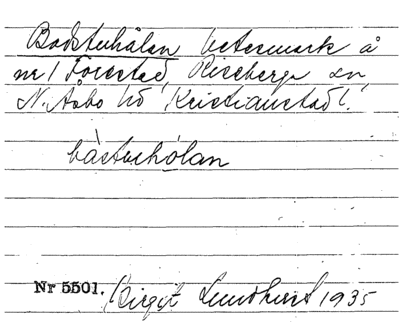 Badstuhålan betesmark å
nr 1 Forestad, Riseberga sn,
N. Åsbo hd Kristianstad l.
bàstuhọlan
Nr 5501. Birgit Lundkvist 1935